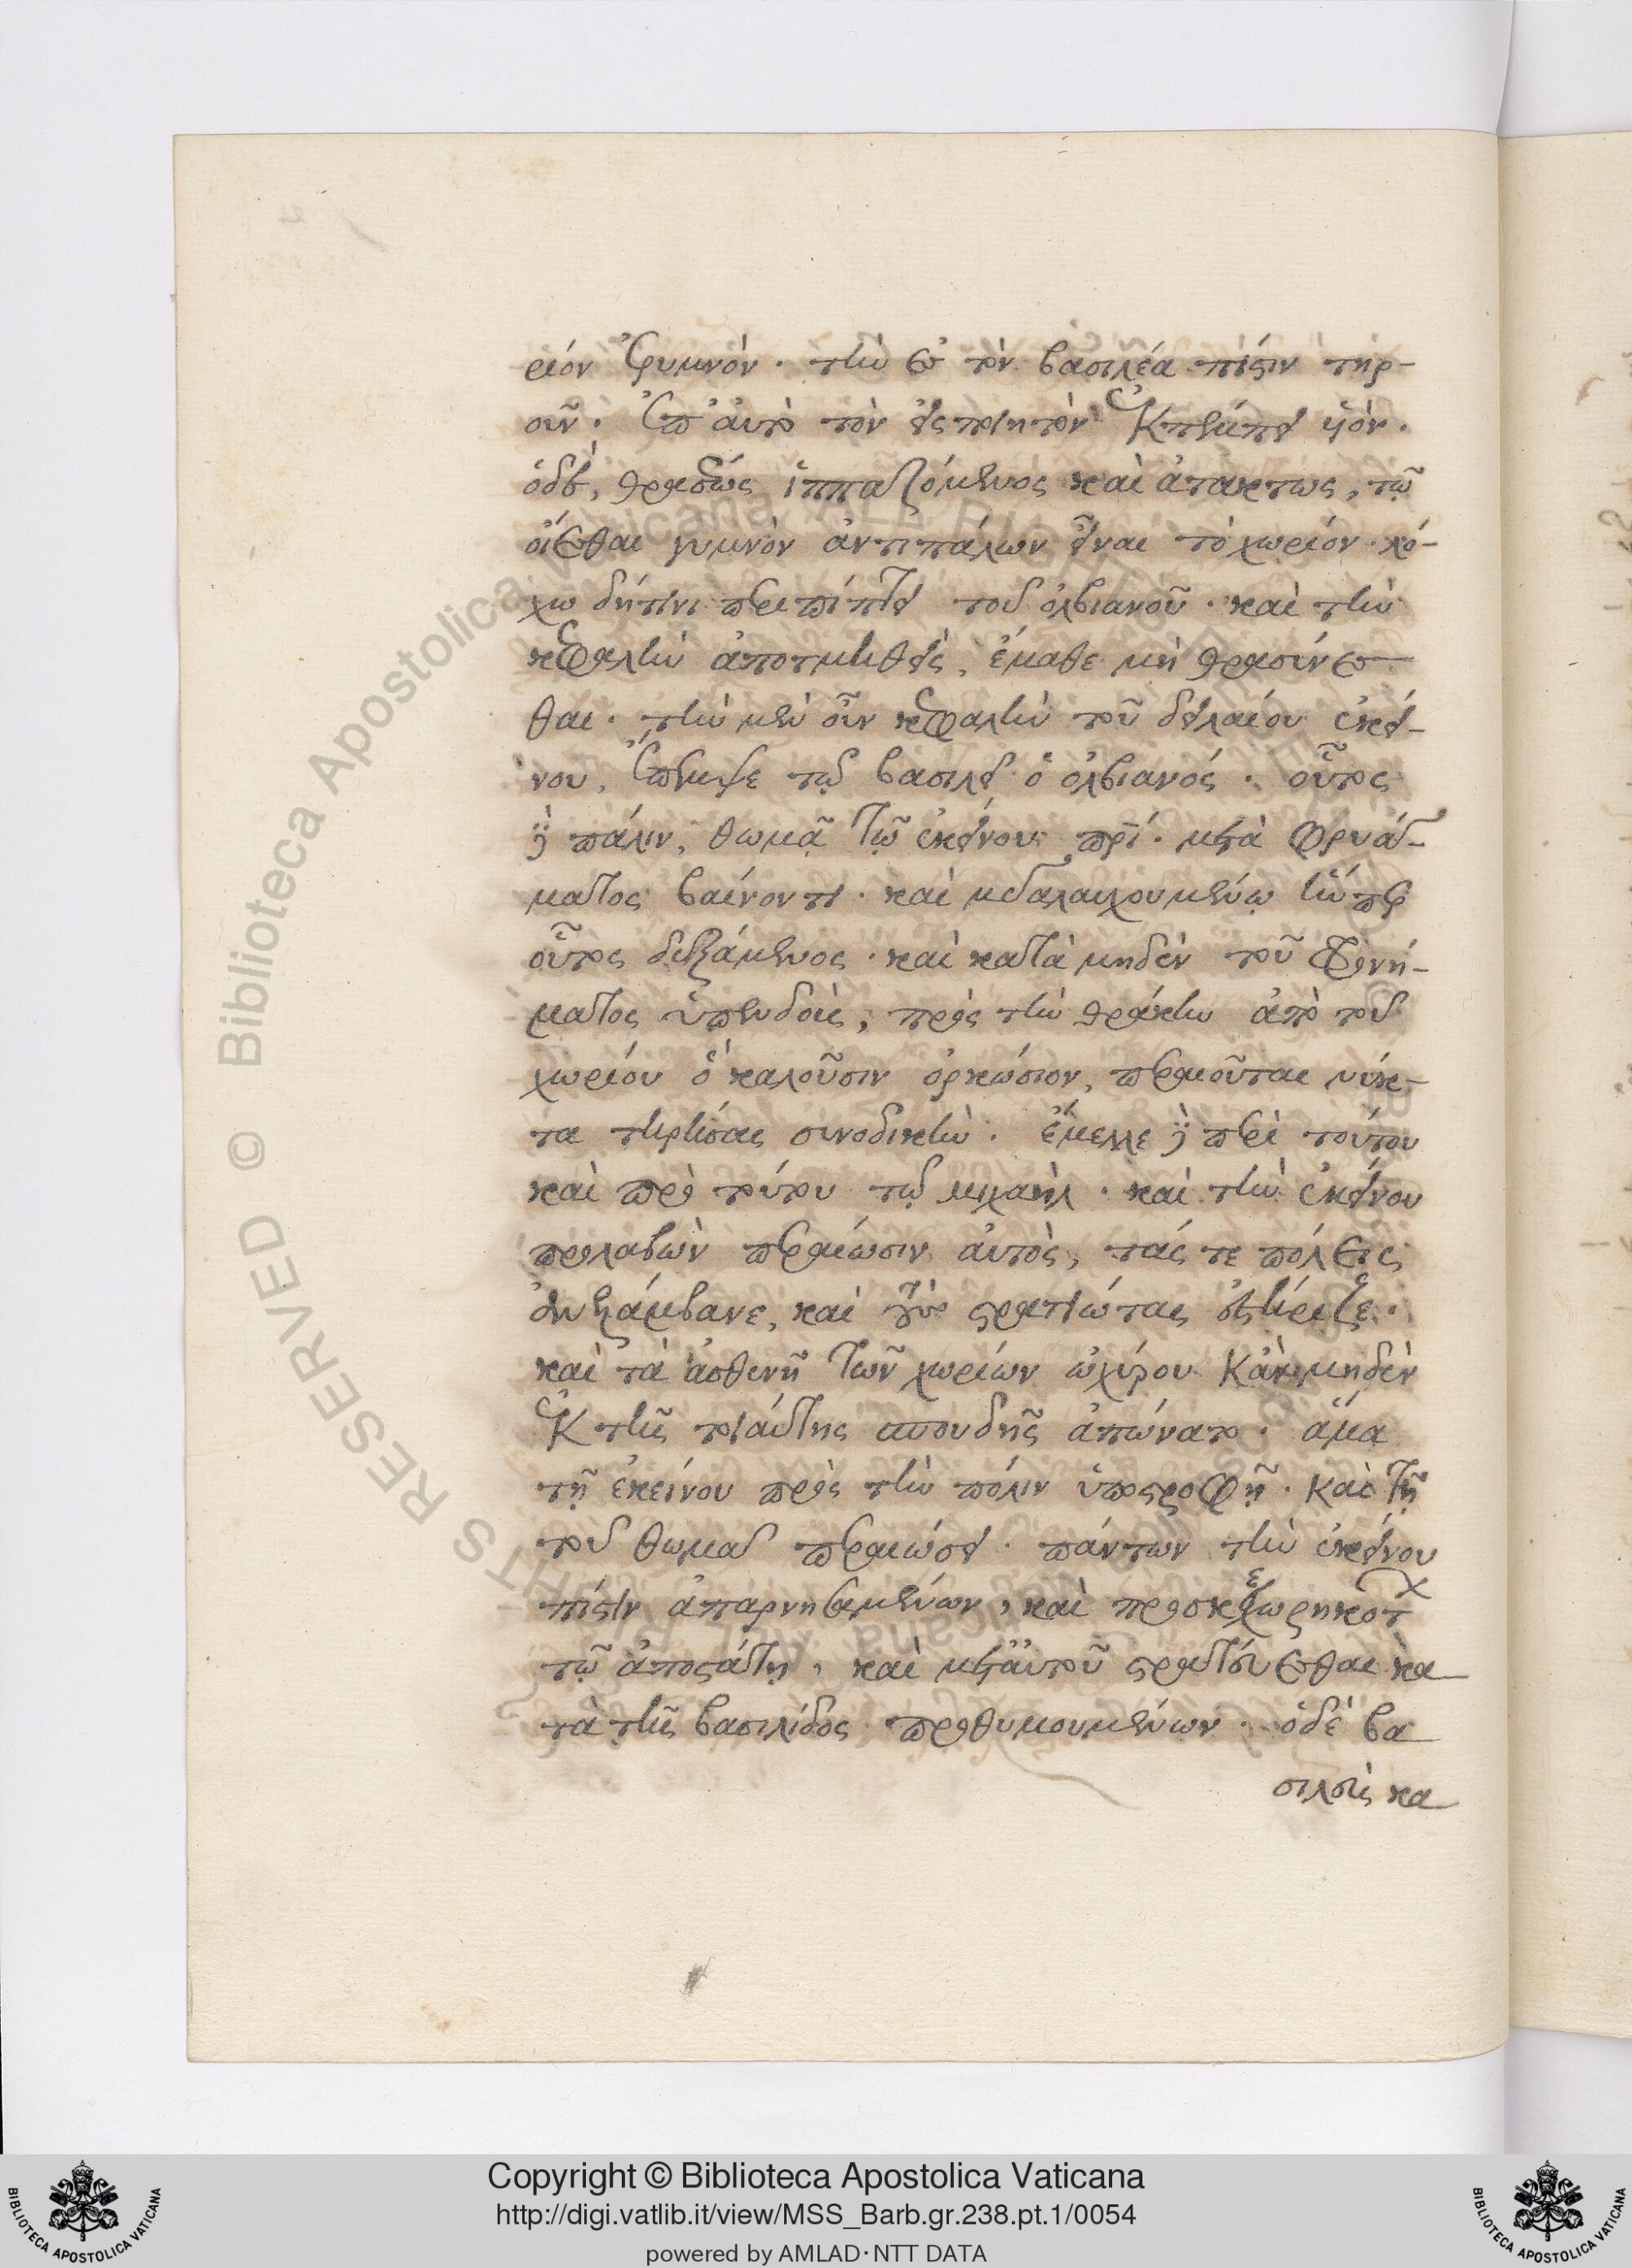 ρίον ἐρυμνὸν. τὴν εἰς τὸν βασιλέα πίστιν τηρ-
οῦν. ἐπ' αὐτὸ τὸν εἰσποιητὸν ἐκπέμπει υἱόν.
ὁ δὲ, θρασέως ἱππαζόμενος καὶ ἀτάκτως, τῷ
οἴεσθαι γυμνὸν ἀντιπάλων εἶναι τὸ χωρίον. λό-
χῳ δή τινι περιπίπτει τοῦ ὀλβιανοῦ. καὶ τὴν
κεφαλὴν ἀποτμηθεὶς, ἔμαθε μὴ θρασύνεσ-
θαι. τὴν μὲν οὖν κεφαλὴν τοῦ δειλαίου ἐκεί-
νου, ἔπεμψε τῷ βασιλεῖ ὁ ὀλβιανός. οὗτος
δὲ πάλιν, θωμᾷ τῷ ἐκείνου πρί. μετὰ φρυάγ-
ματος βαίνοντι. καὶ μεγαλαυχουμένῳ ἥνπερ
οὗτος δεξάμενος. καὶ κατὰ μηδὲν τοῦ φρονή-
ματος ὑπενδοὺς, πρὸς τὴν θράκην ἀπὸ τοῦ
χωρίου ὃ καλοῦσιν ὁρκώσιον, περαιοῦται νύκ-
τα τηρήσας συνοδικὴν. ἔμελλε δὲ περὶ τούτου
καὶ πρὸ τούτου τῷ μιχαὴλ. καὶ τὴν ἐκείνου
προλαβὼν περαίωσιν αὐτὸς, τάς τε πόλεις
ἀνελάμβανε, καὶ τοὺς στρατιώτας ἐστήριζε.
καὶ τὰ ἀσθενῆ τῶν χωρίων ὠχύρου κἂν μηδὲν
ἐκ τῆς τοιαύτης σπουδῆς ἀπώνατο. ἅμα
τῇ ἐκείνου πρὸς τὴν πόλιν ὑποστροφῇ. καὶ τῇ
τοῦ θωμᾶ περαιώσει. πάντων τὴν ἐκείνου
πίστιν ἀπαρνησαμένων, καὶ προσκεχωρηκότ
τῷ ἀποστάτῃ. καὶ μετ' αὐτοῦ στρατεύεσθαι κα
τὰ τῆς βασιλίδος προθυμουμένων. ὁ δὲ βα
σιλεὺς κα
Copyright © Biblioteca Apostolica Vaticana
http://digi.vatlib.it/view/MSS_Barb.gr.238.pt.1/0054
powered by AMLAD·NTT DATA